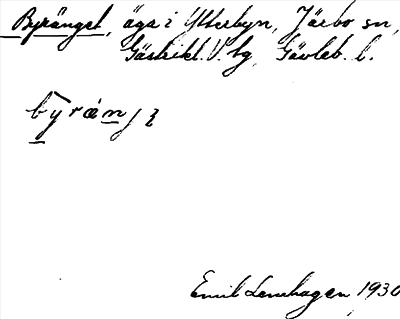 Byränget, äga i Ytterbyn, Järbo sn,
Gästrikl. V. tg, Gävleb. l.
byrän
Emil Lenhagen 1930